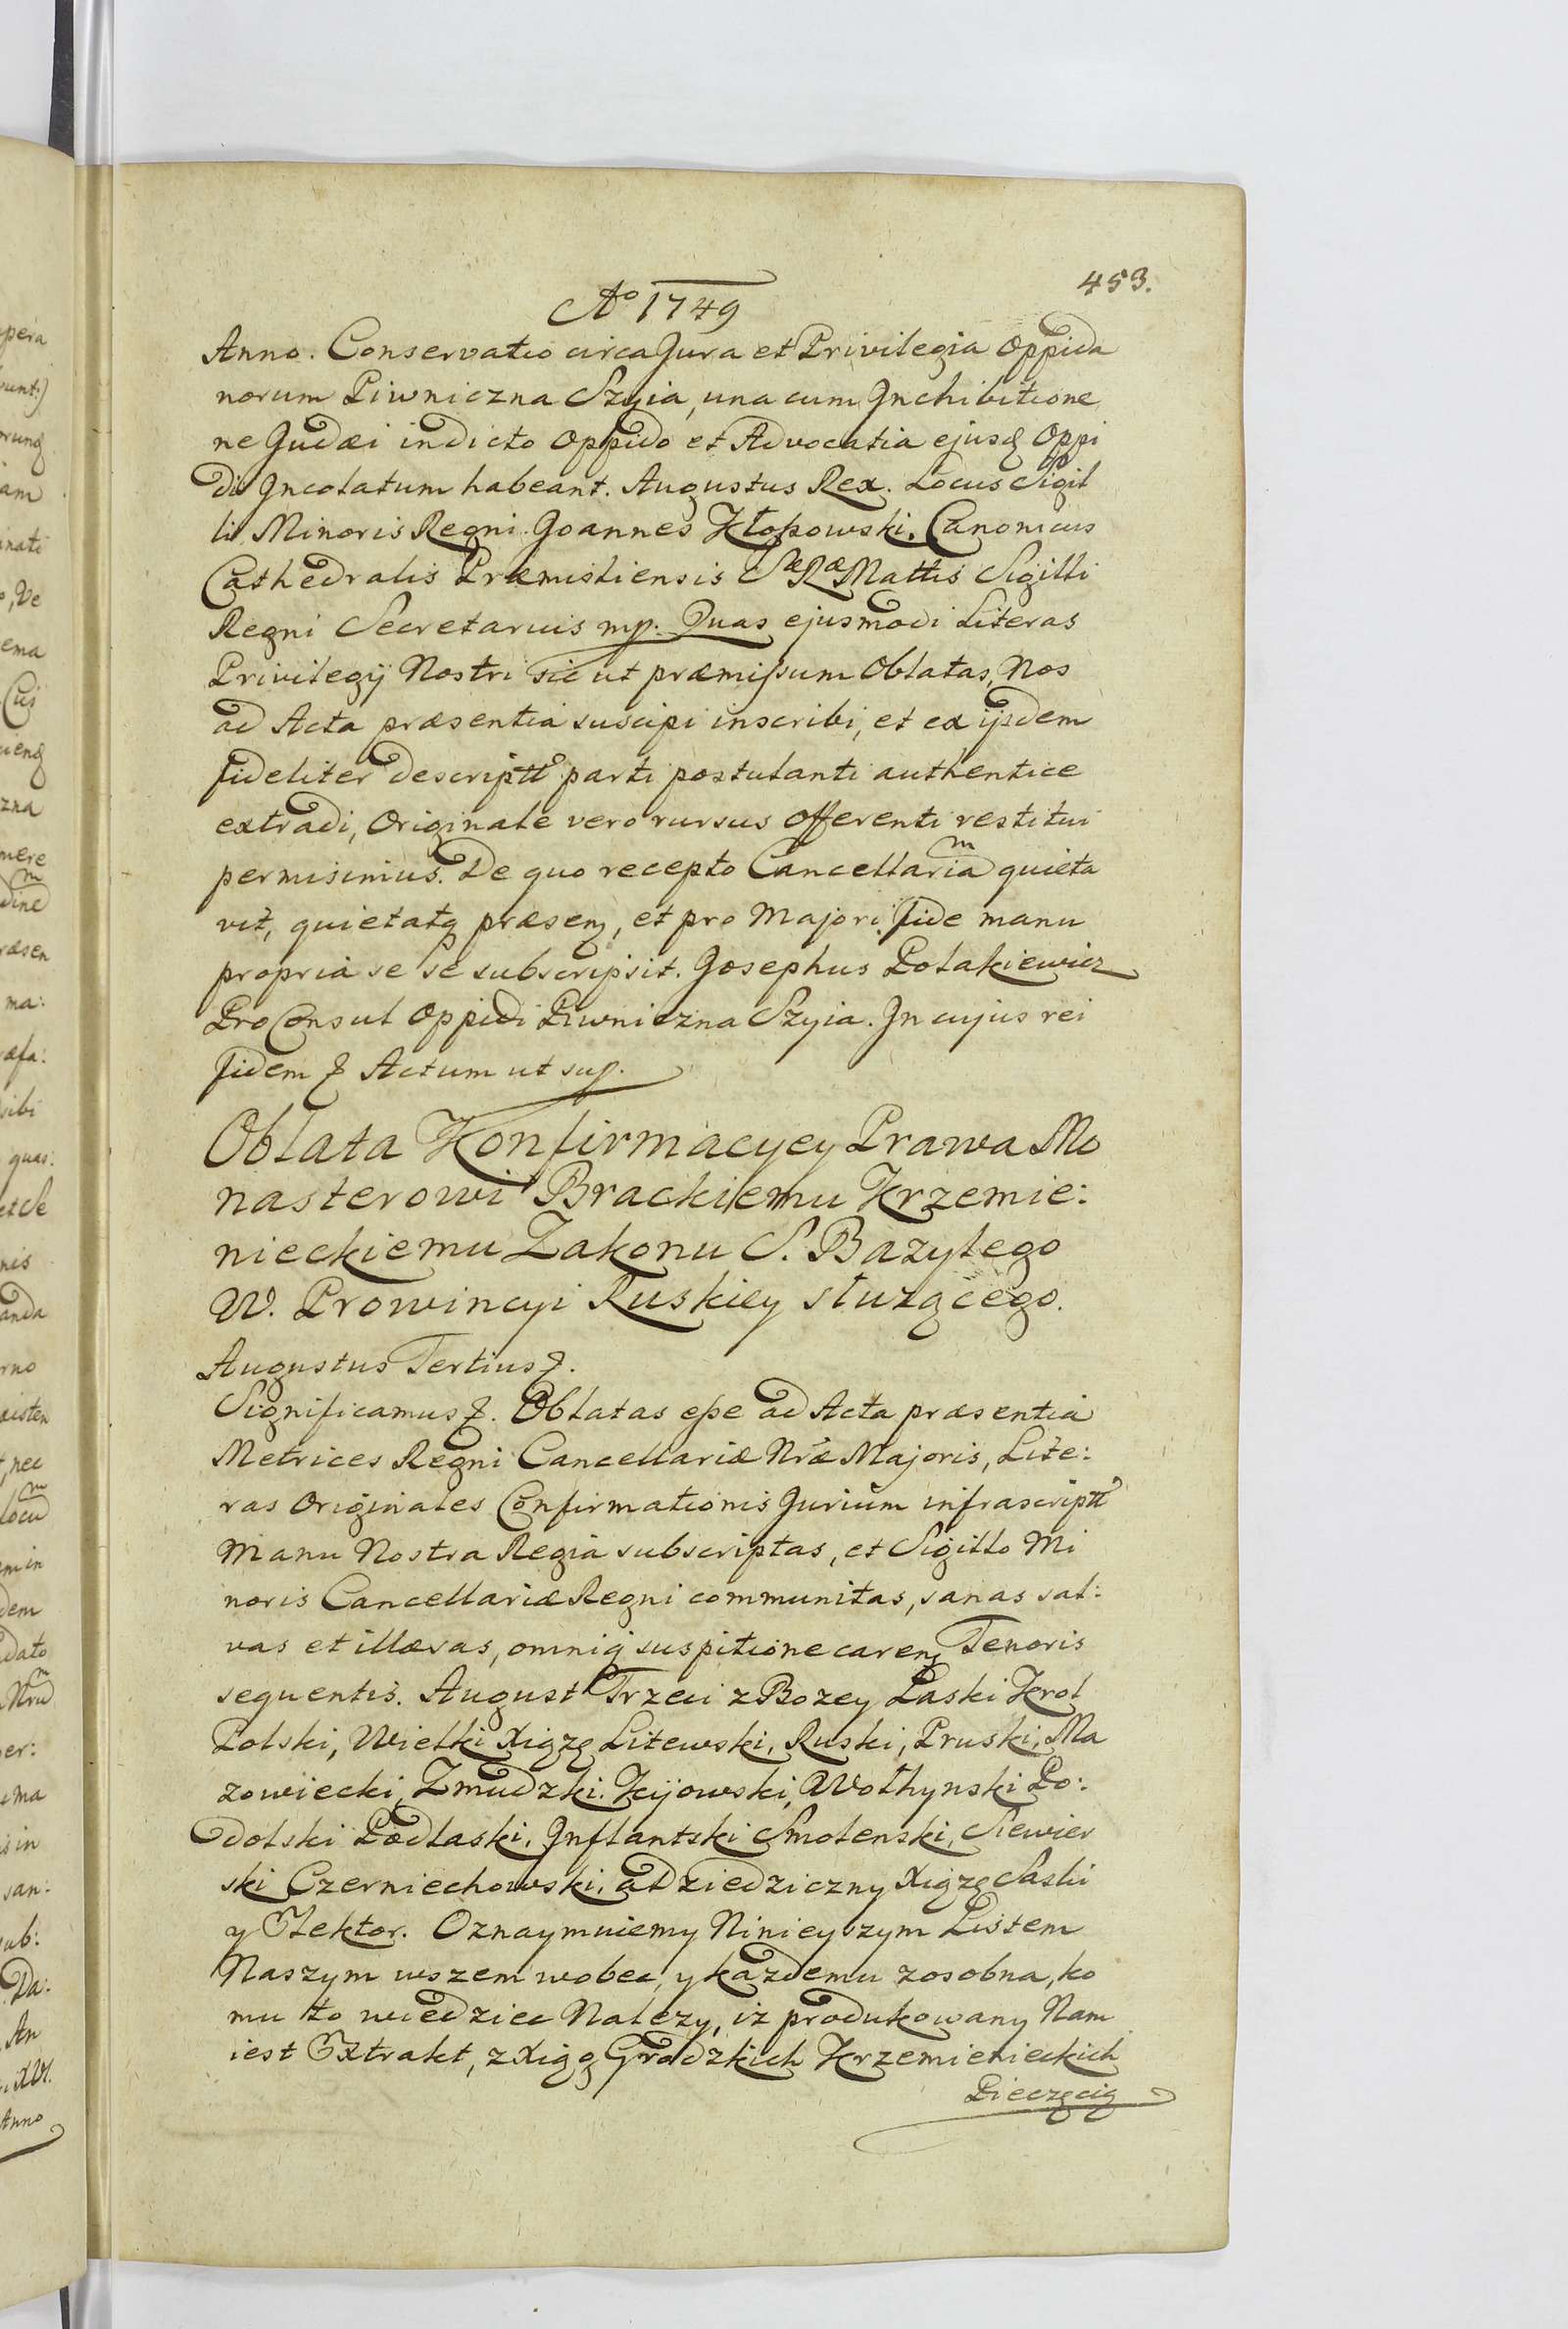 453.
Aº 1749
Anno. Conservatio circa Jura et Privilegia Oppida
norum Piwniczna Szyia, una cum Inchibitione
ne Judæi in dicto Oppido et Advocatia ejusq Oppi
di Incolatum habeant. Augustus Rex. Locus Sigil
li Minoris Regni. Joannes Kłopowski. Canonicus
Cathedralis Præmisliensis SæRæMattis Sigilli
Regni Secretarius mp. Quas ejusmodi Literas
Privilegij Nostri sic ut præmissum Oblatas, Nos
ad Acta præsentia suscipi inscribi, et ex ijsdem
fideliter descriptt parti postulanti authentice
extradi, Originale vero rursus Offerenti restitui
permisimus. De quo recepto Cancellariam quieta
vit, quietatq præsenz, et pro Majori fide manu
propria se se subscripsit. Josephus Polakiewicz
Pro Consul Oppidi Piwniczna Szyia. In cujus rei
fidem & Actum ut sup.
Oblata Konfirmacyey Prawa Mo
nasterowi Brackiemu Krzemie:
nieckiemu Zakonu S. Bazylego
W. Prowincyi Ruskiey słuzącego.
Augustus Tertius &.
Significamus &. Oblatas esse ad Acta præsentia
Metrices Regni Cancellariæ Nræ Majoris, Lite:
ras Originales Confirmationis Jurium infrascriptt
Manu Nostra Regia subscriptas, et Sigillo Mi
noris Cancellariæ Regni communitas, sanas sal:
vas et illæsas, omniq suspitione carenz Tenoris
sequentis. August Trzeci z Bozey Łaski Krol
Polski, Wielki Xiązę Litewski, Ruski, Pruski, Ma
zowiecki, Zmudzki. Kijowski, Wołhynski Po:
dolski Podlaski. Inflantski Smolenski, Siewier
ski Czerniechowski, a dziedziczny Xiązę Saski
y Elektor. Oznaymuiemy Ninieyszym Listem
Naszym wszem wobec, y kazdemu zosobna, ko
mu to wiedziec Nalezy, iz produkowany Nam
iest Extrakt, z Xiąg Grodzkich Krzemienieckich
Pieczęcią